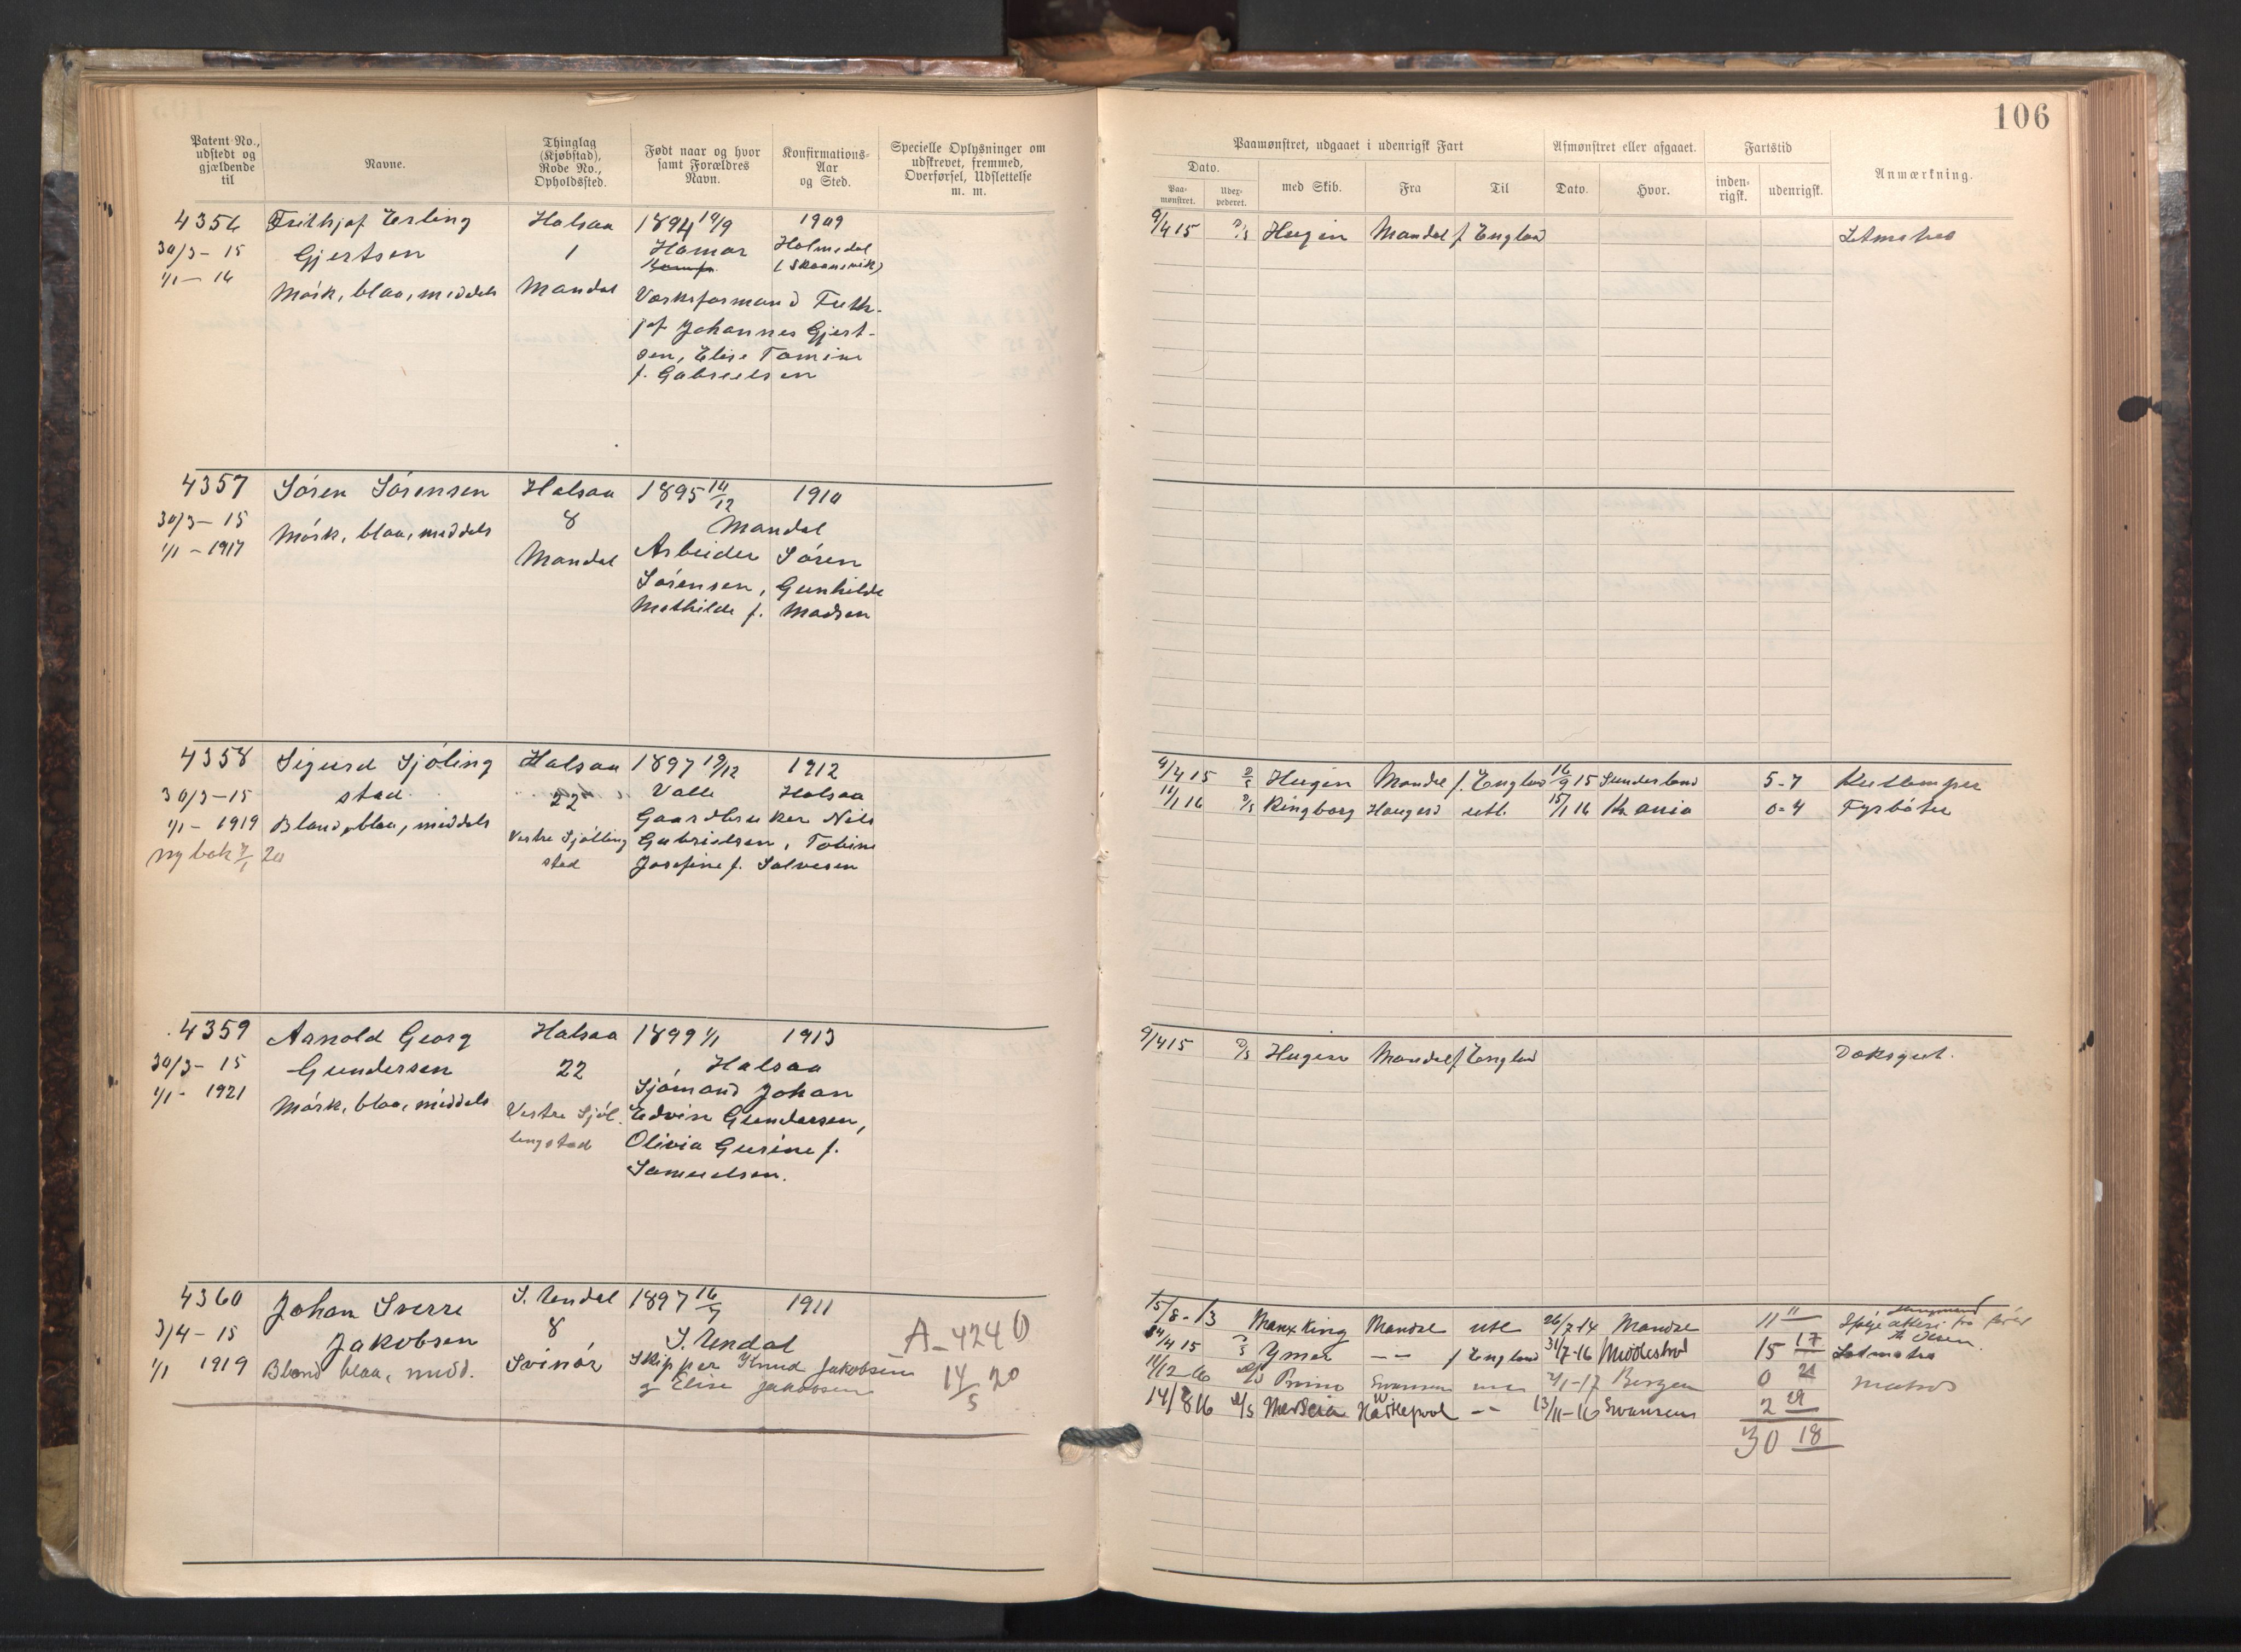 106
Patent-No., udstedt og gjældende til
Navne.
Thinglag (Kjøbstad), Rode No., Opholdssted.
Født naar og hvor samt Forældres Navn.
Konfirmations-Aar og Sted.
Specielle Oplysninger om udskrevet, fremmed, Overførsel, Udslettelse m. m.
Paamønstret, udgaaet i udenrigsk Fart
Afmønstret eller afgaaet.
Fartstid
Anmærkning.
Dato.
Paa-mønstret.
Udex-pederet.
med Skib.
Fra
Til
Dato.
Hvor.
inden-rigsk.
udenrigsk.
4356 Frithjof Erling Halsaa 1894 19/9 1909
30/3 - 15 Gjertsen 1 Hamar Holmedal
1/1 - 16 (Skaanevik)
Mörk, blaa, middels Mandal Værksformand Frith-
jof Johannes Gjert-
sen, Elise Tomine
f. Gabrielsen
9/4 15 D/S Hugin Mandal f. England Letmatros
4357 Sören Sörensen Halsaa 1895 14/12 1910
30/3 - 15 8 Mandal
1/1 - 1917 Mörk, blaa, middels Mandal Arbeider Sören
Sörensen, Gunhilde
Mathilde f. Madsen
4358 Sigurd Sjöling Halsaa 1897 19/12 1912
30/3 - 15 stad 22 Valle Halsaa
1/1 - 1919 Blond, blaa, middels Gaardbruker Nils
Vestre Sjölling Gabrielsen, Tobine
ny bok 7/1 20 stad Josefine f. Salvesen
9/4 15 D/S Hugin Mandal f. England 16/9 15 Sunderland 5-7 Kullemper
11/1 16 D/S Ringborg Haugesd utl. 15/1 16 Kr.ania 0-4 Fyrböter
4359 Arnold Georg Halsaa 1899 1/1 1913
30/3 - 15 Gundersen 22 Halsaa
1/1 - 1921 Sjömand Johan
Mörk, blaa, middels Vestre Sjöl- Edvin Gundersen,
lingstad Olivia Gusine f.
Samuelsen.
9/4 15 D/S Hugin Mandal f. England Dæksgut.
4360 Johan Sverre S. Undal 1897 16/7 1911
3/4 - 15 Jakobsen 8 S. Undal A - 4240
1/1 1919 Blond blaa, midd. Svinör Skipper Knud Jakobsen 14/5 20
g Elise Jakobsen
15/8 - 13 Manx King Mandal utl 26/7-14 Mandal 11 11
14/4 15 D/S Ymer -"- f England 31/7-16 Middlesbro 15 17 Letmatros
D/S Swansea Bergen 0 21 Matros
14/8 16 D/S Hartlepool -"- 13/11-16 Swansea 2 29
30 18